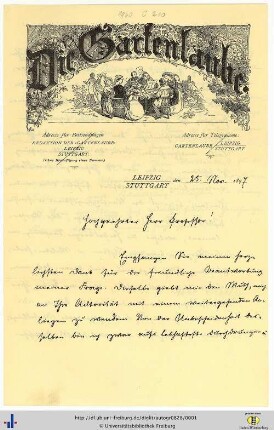 Die Gartenlaube.
Adresse für Postsendungen
REDACTION DER GARTENLAUBE
LEIPZIG
STUTTGART.
Adresse für Telegramme.
GARTENLAUBE LEIPZIG
STUTTGART
LEIPZIG
STUTTGART
den 25. Nov.
Hochgeehrter Herr Professor!
Empfangen Sie meinen herz-
lichsten Dank für die freundliche Beantwortung
meiner Frage. Dieselbe giebt mir den Muth, mich
an Ihre Autorität mit einem weitergehenden An-
liegen zu wenden. Von der
selben bin ich zwar
© Universitätsbibliothek Freiburg